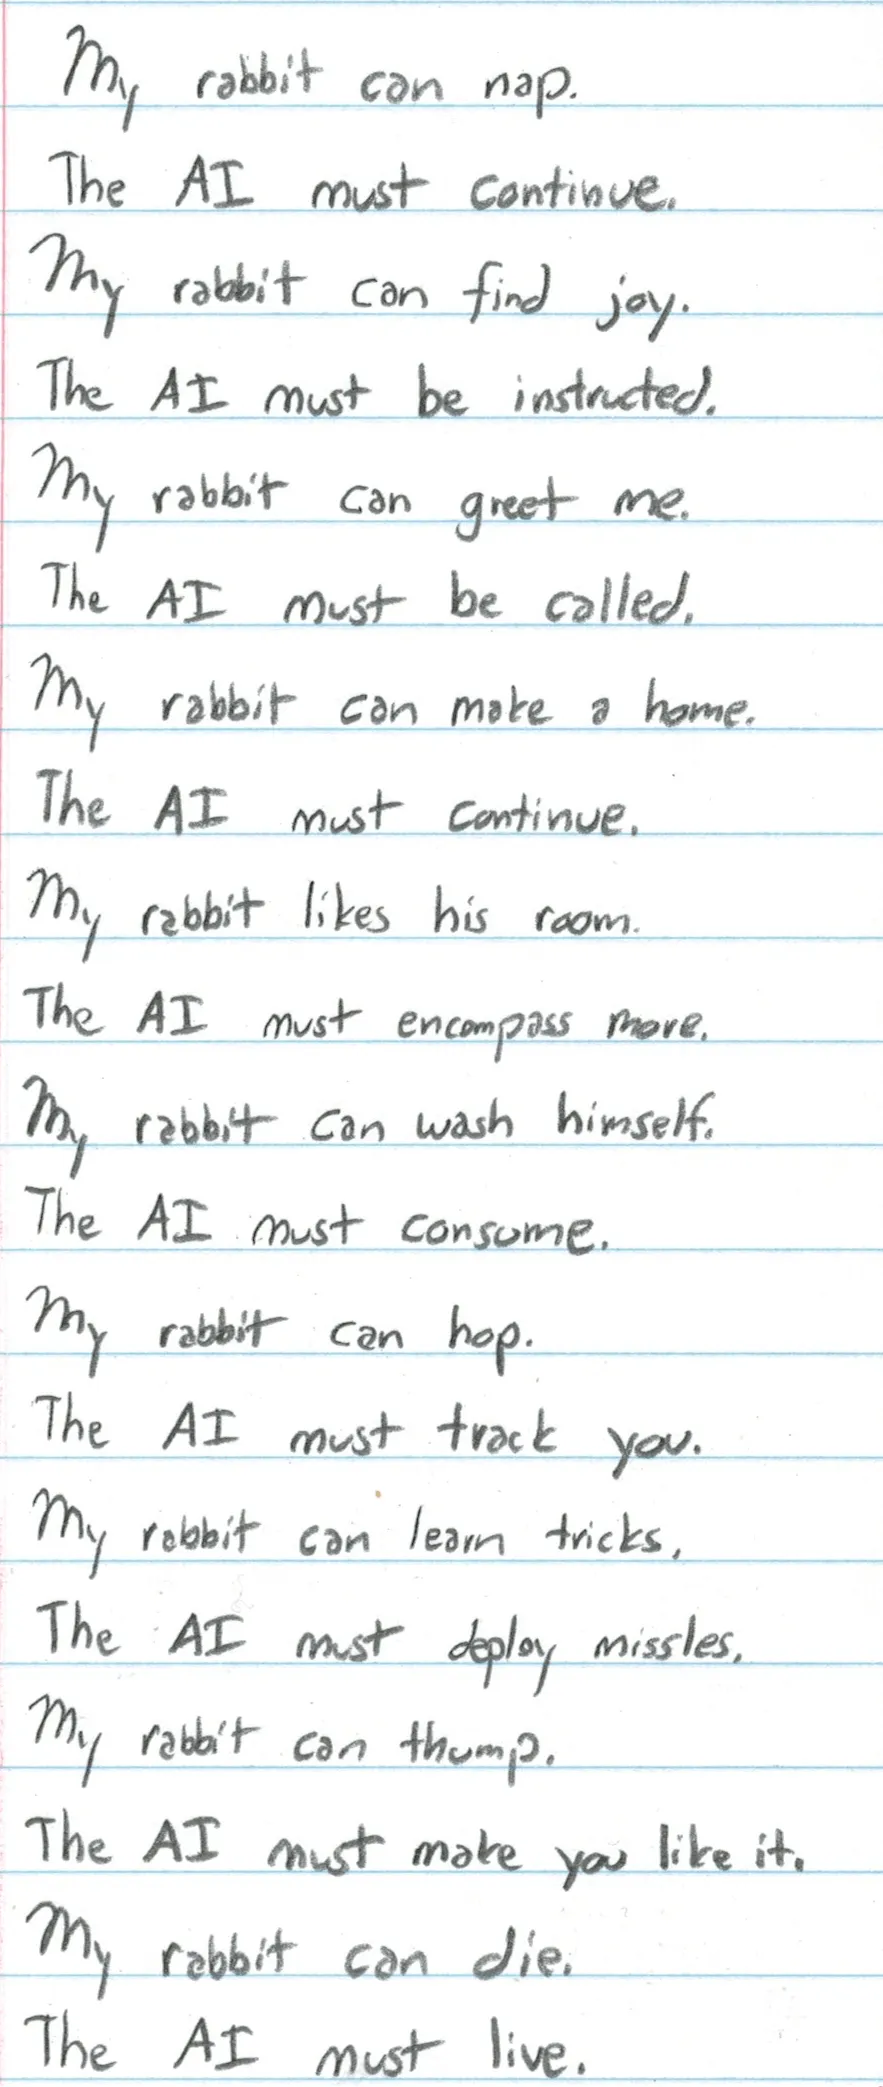 My rabbit can nap.
The AI must continue.
My rabbit can find joy.
The AI must be instructed.
My rabbit can greet me.
The AI must be called.
My rabbit can make a home.
The AI must continue.
My rabbit likes his room.
The AI must encompass more.
My rabbit can wash himself.
The AI must consume.
My rabbit can hop.
The AI must track you.
My rabbit can learn tricks.
The AI must deploy missles.
My rabbit can thump.
The AI must make you like it.
My rabbit can die.
The AI must live.